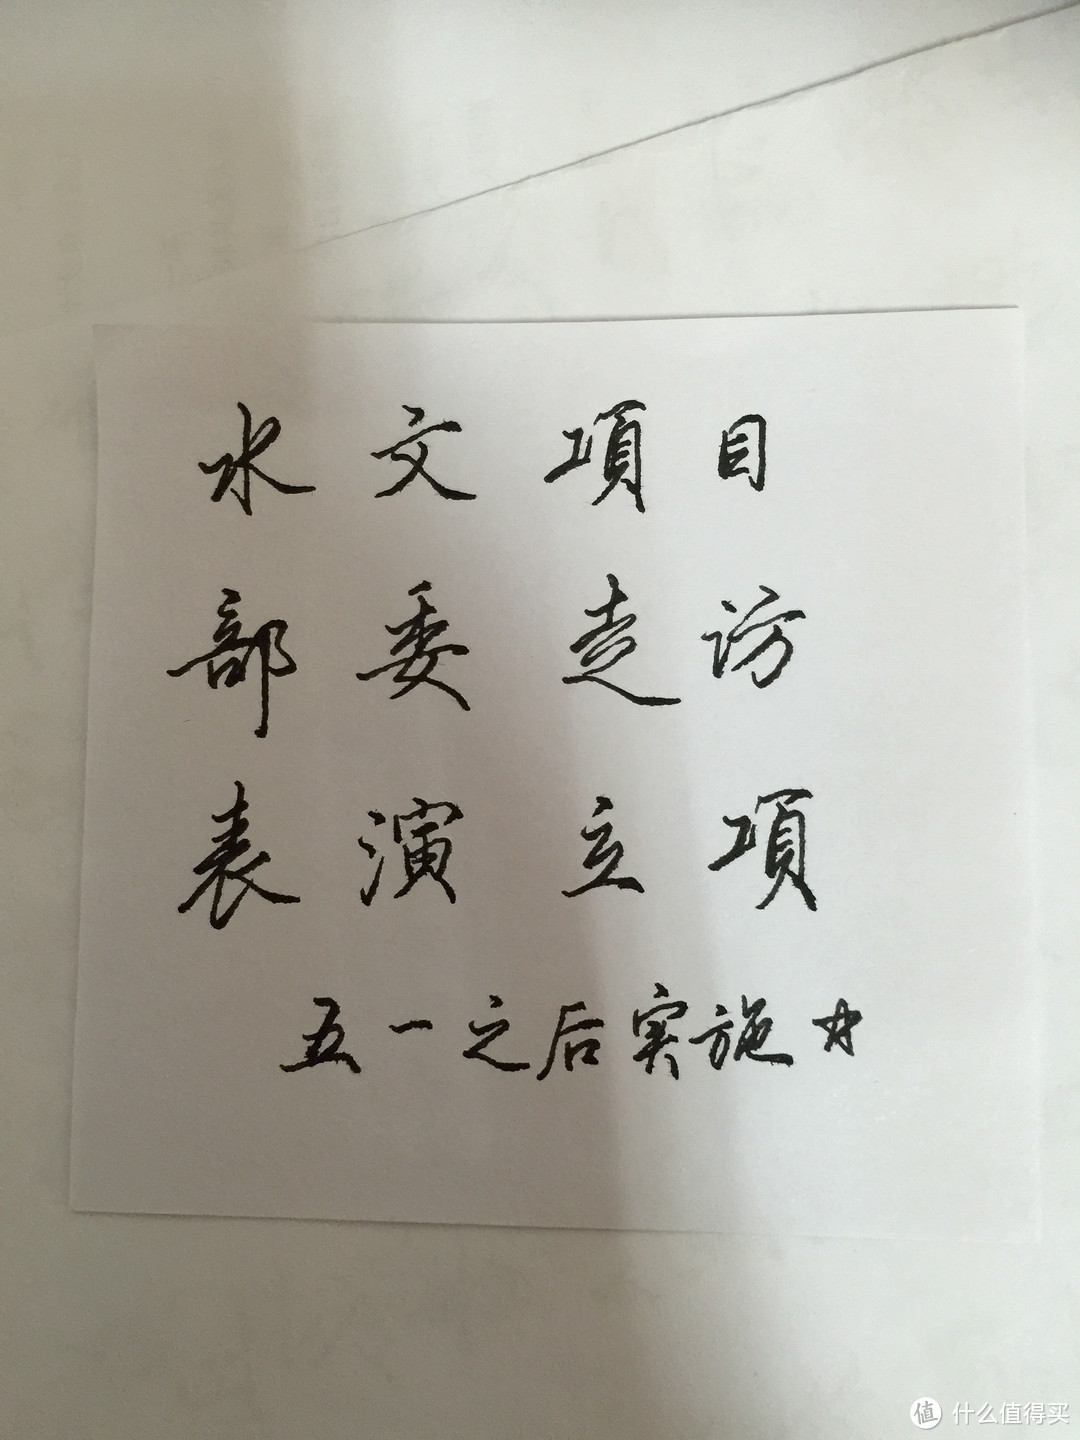 水文項目
部委走访
表演立項
五一之后实施☆
值 什么值得买